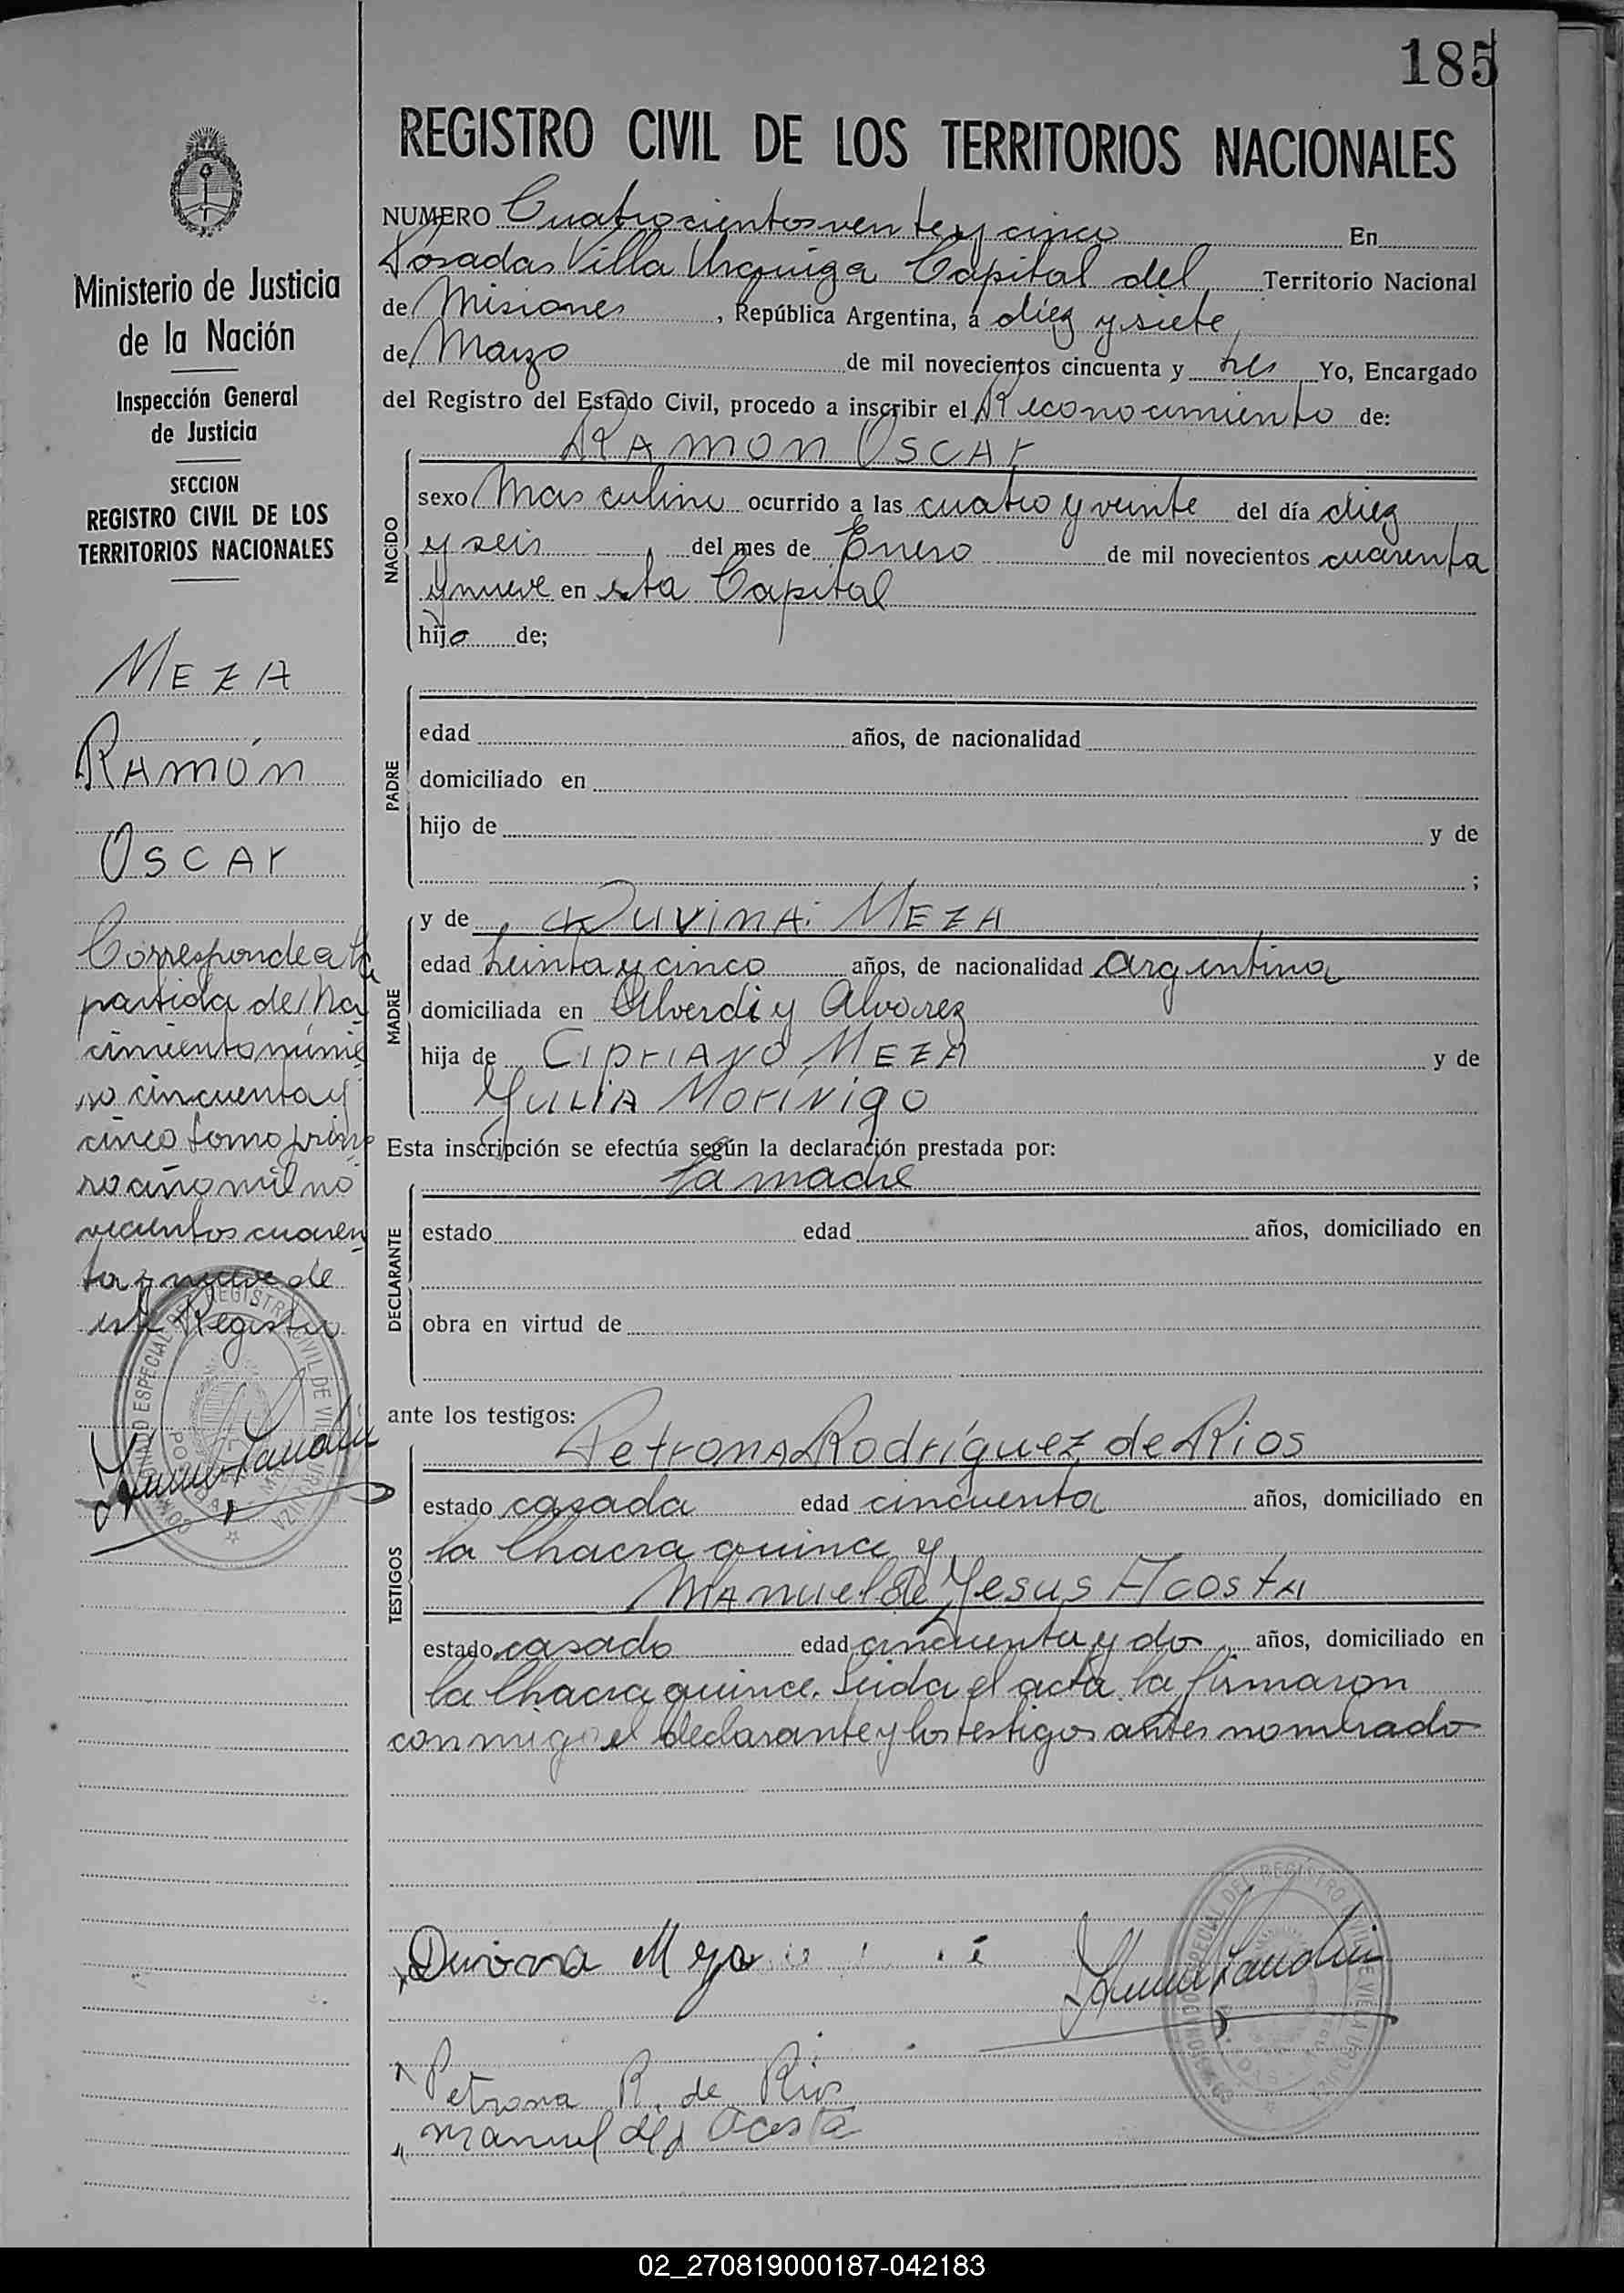 185
REGISTRO CIVIL DE LOS TERRITORIOS NACIONALES
NUMERO Cuatrocientos veinte y cinco En
Posadas Villa Urquiza Capital del Territorio Nacional
de Misiones, República Argentina, a diez y siete
de Marzo de mil novecientos cincuenta y tres Yo, Encargado
del Registro del Estado Civil, procedo a inscribir el Reconocimiento de:
RAMON OSCAR
NACIDO
sexo Masculino ocurrido a las cuatro y veinte del día diez
y seis del mes de Enero de mil novecientos cuarenta
y nueve en esta Capital
hijo de;
PADRE
edad años, de nacionalidad
domiciliado en
hijo de y de
;
MADRE
y de Duvina MEZA
edad treinta y cinco años, de nacionalidad argentina
domiciliada en Alverdi y Alvarez
hija de CIPRIANO MEZA y de
YULIA MORINIGO
Esta inscripción se efectúa según la declaración prestada por:
la madre
DECLARANTE
estado edad años, domiciliado en
obra en virtud de
ante los testigos:
TESTIGOS
Petrona Rodríguez de Rios
estado casada edad cincuenta años, domiciliado en
la Chacra quince y
Manuel de Yesus Acosta
estado casado edad cincuenta y do años, domiciliado en
la Chacra quince. Leida el acta la firmaron
conmigo el declarante y los testigos antes nombrado
Duvina Meza
Petrona R. de Rios
Manuel del J Acosta
Ministerio de Justicia
de la Nación
Inspección General
de Justicia
SECCION
REGISTRO CIVIL DE LOS
TERRITORIOS NACIONALES
MEZA
RAMÓN
OSCAR
Corresponde a la
partida de Na
cimiento núme
ro cincuenta y
cinco tomo prime
ro año mil no
vecientos cuaren
ta y nueve de
este Registro
02_270819000187-042183